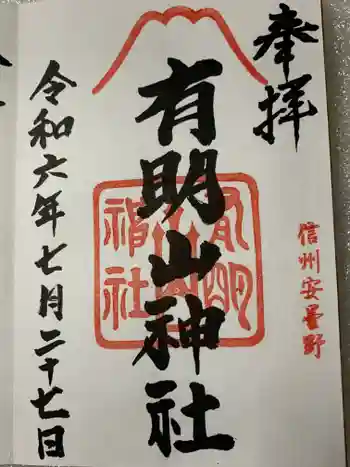 奉拝
信州安曇野
有明山神社
令和六年七月二十七日